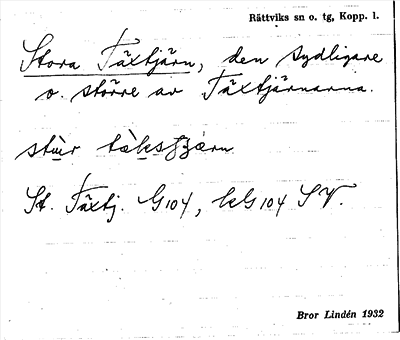 Rättviks sn o. tg, Kopp. l.
Stora Täxtjärn, den sydligare
o. större av Täxtjärnarna.
St. Täxtj. G104, kG104 SV.
Bror Lindén 1932